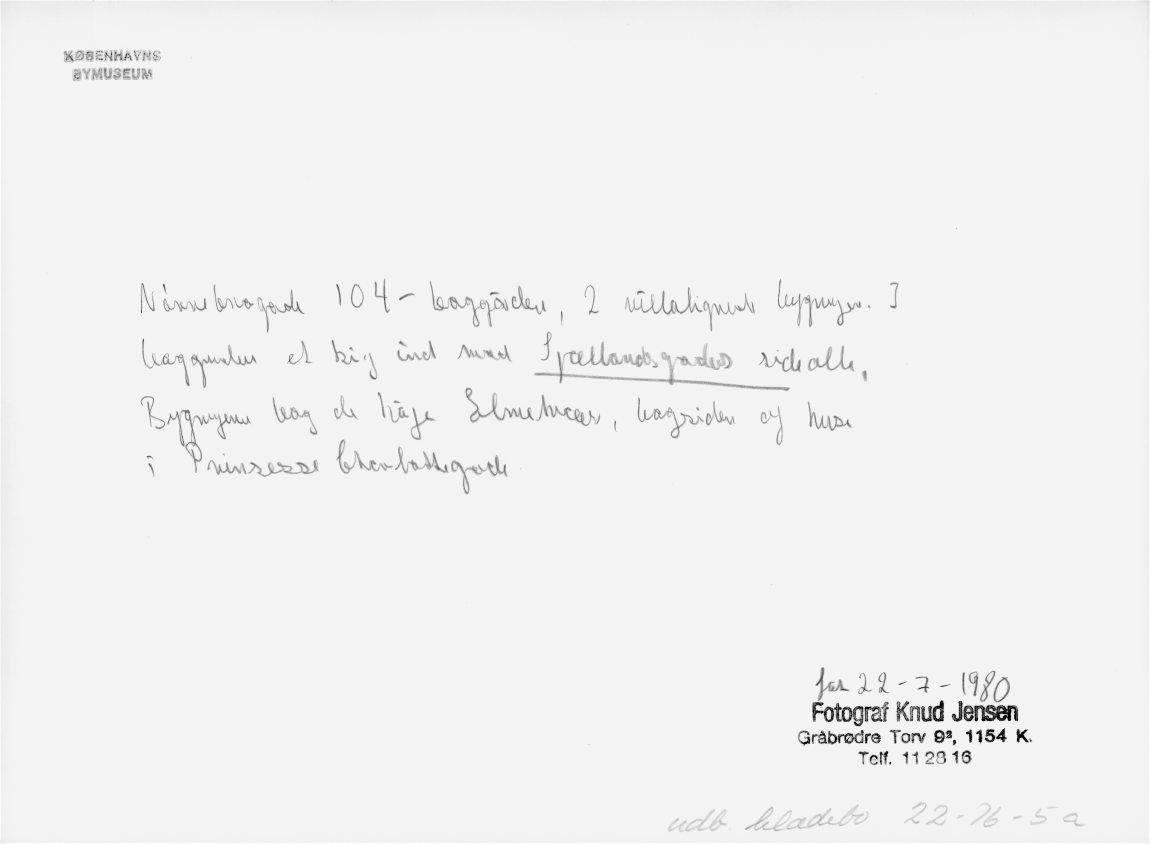 KØBENHAVNS
BYMUSEUM
Nørrebrogade 104 - baggården, 2 villalignende bygninger. I
baggrunden et kig ind mod Sjællandsgades side alle,
Bygningerne bag de høje Elmetræer, bagsiden af huse
i Prinsesse Charlottegade
22-7-1980
Fotograf Knud Jensen
Gråbrødre Torv 9³, 1154 K.
Telf. 11 28 16
udb. 22-76-5a